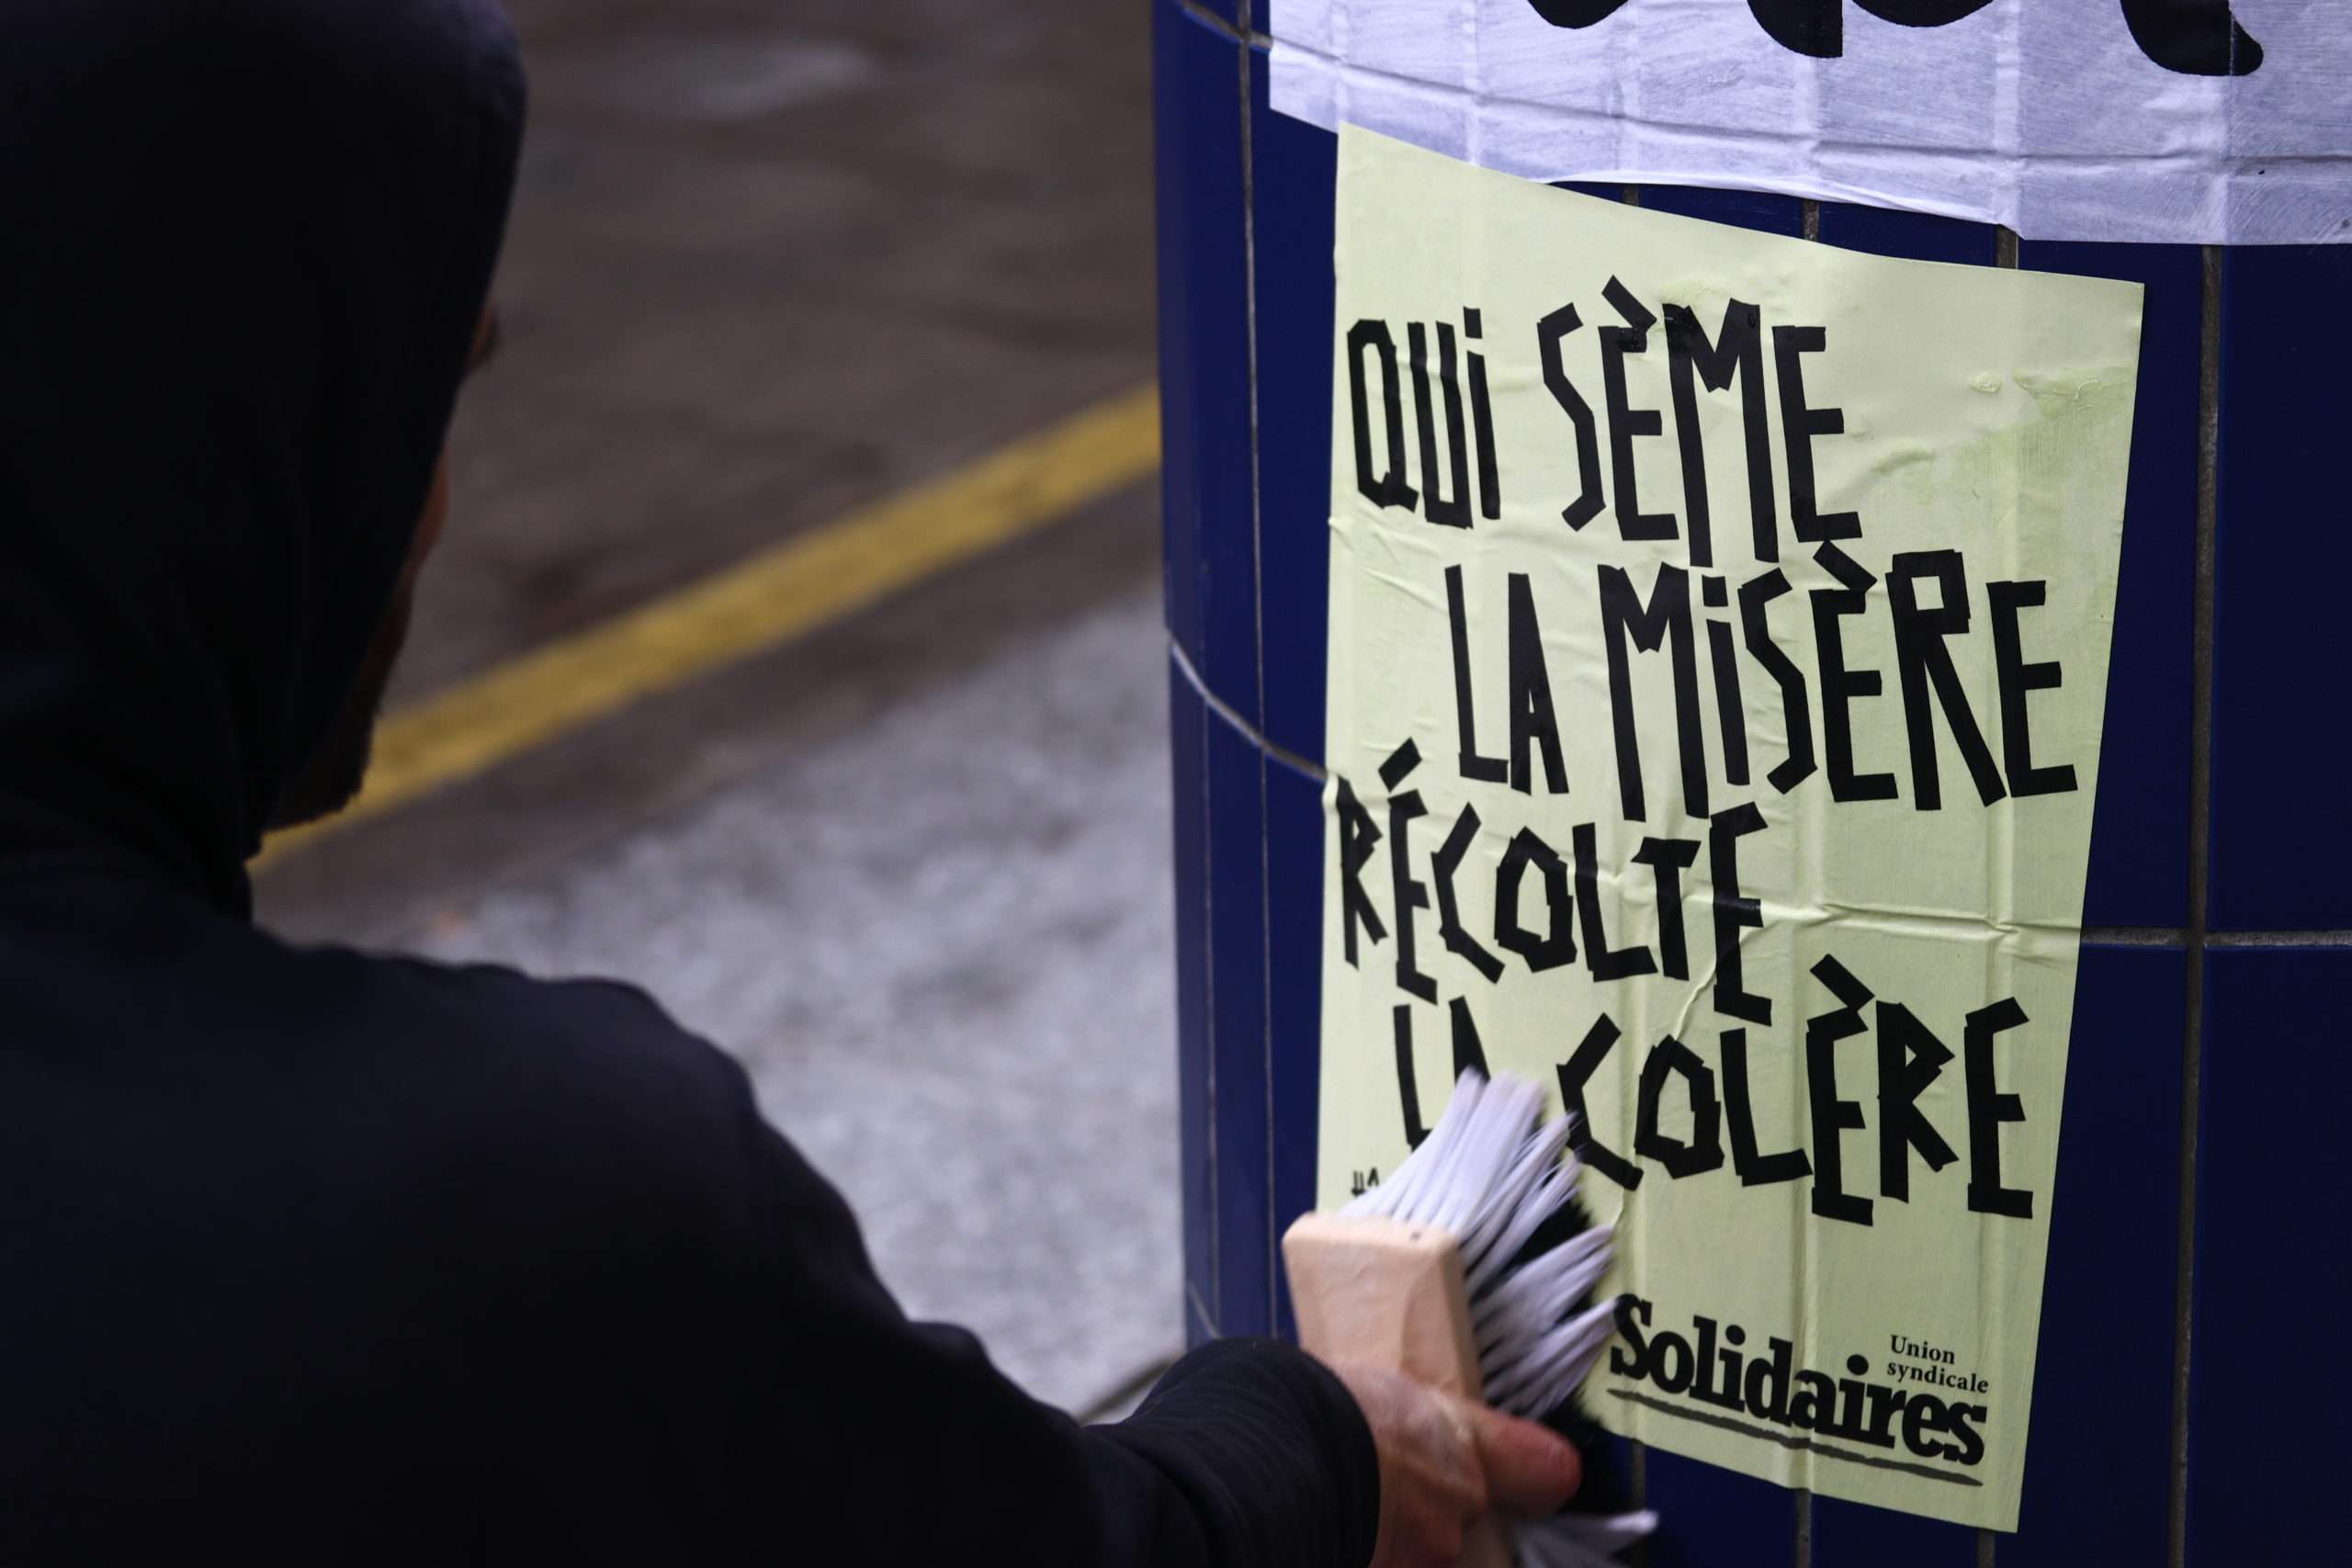 QUi SÈME
LA MiSÈRE
RÉCOLTE
LA COLÈRE
Union
syndicale
Solidaires